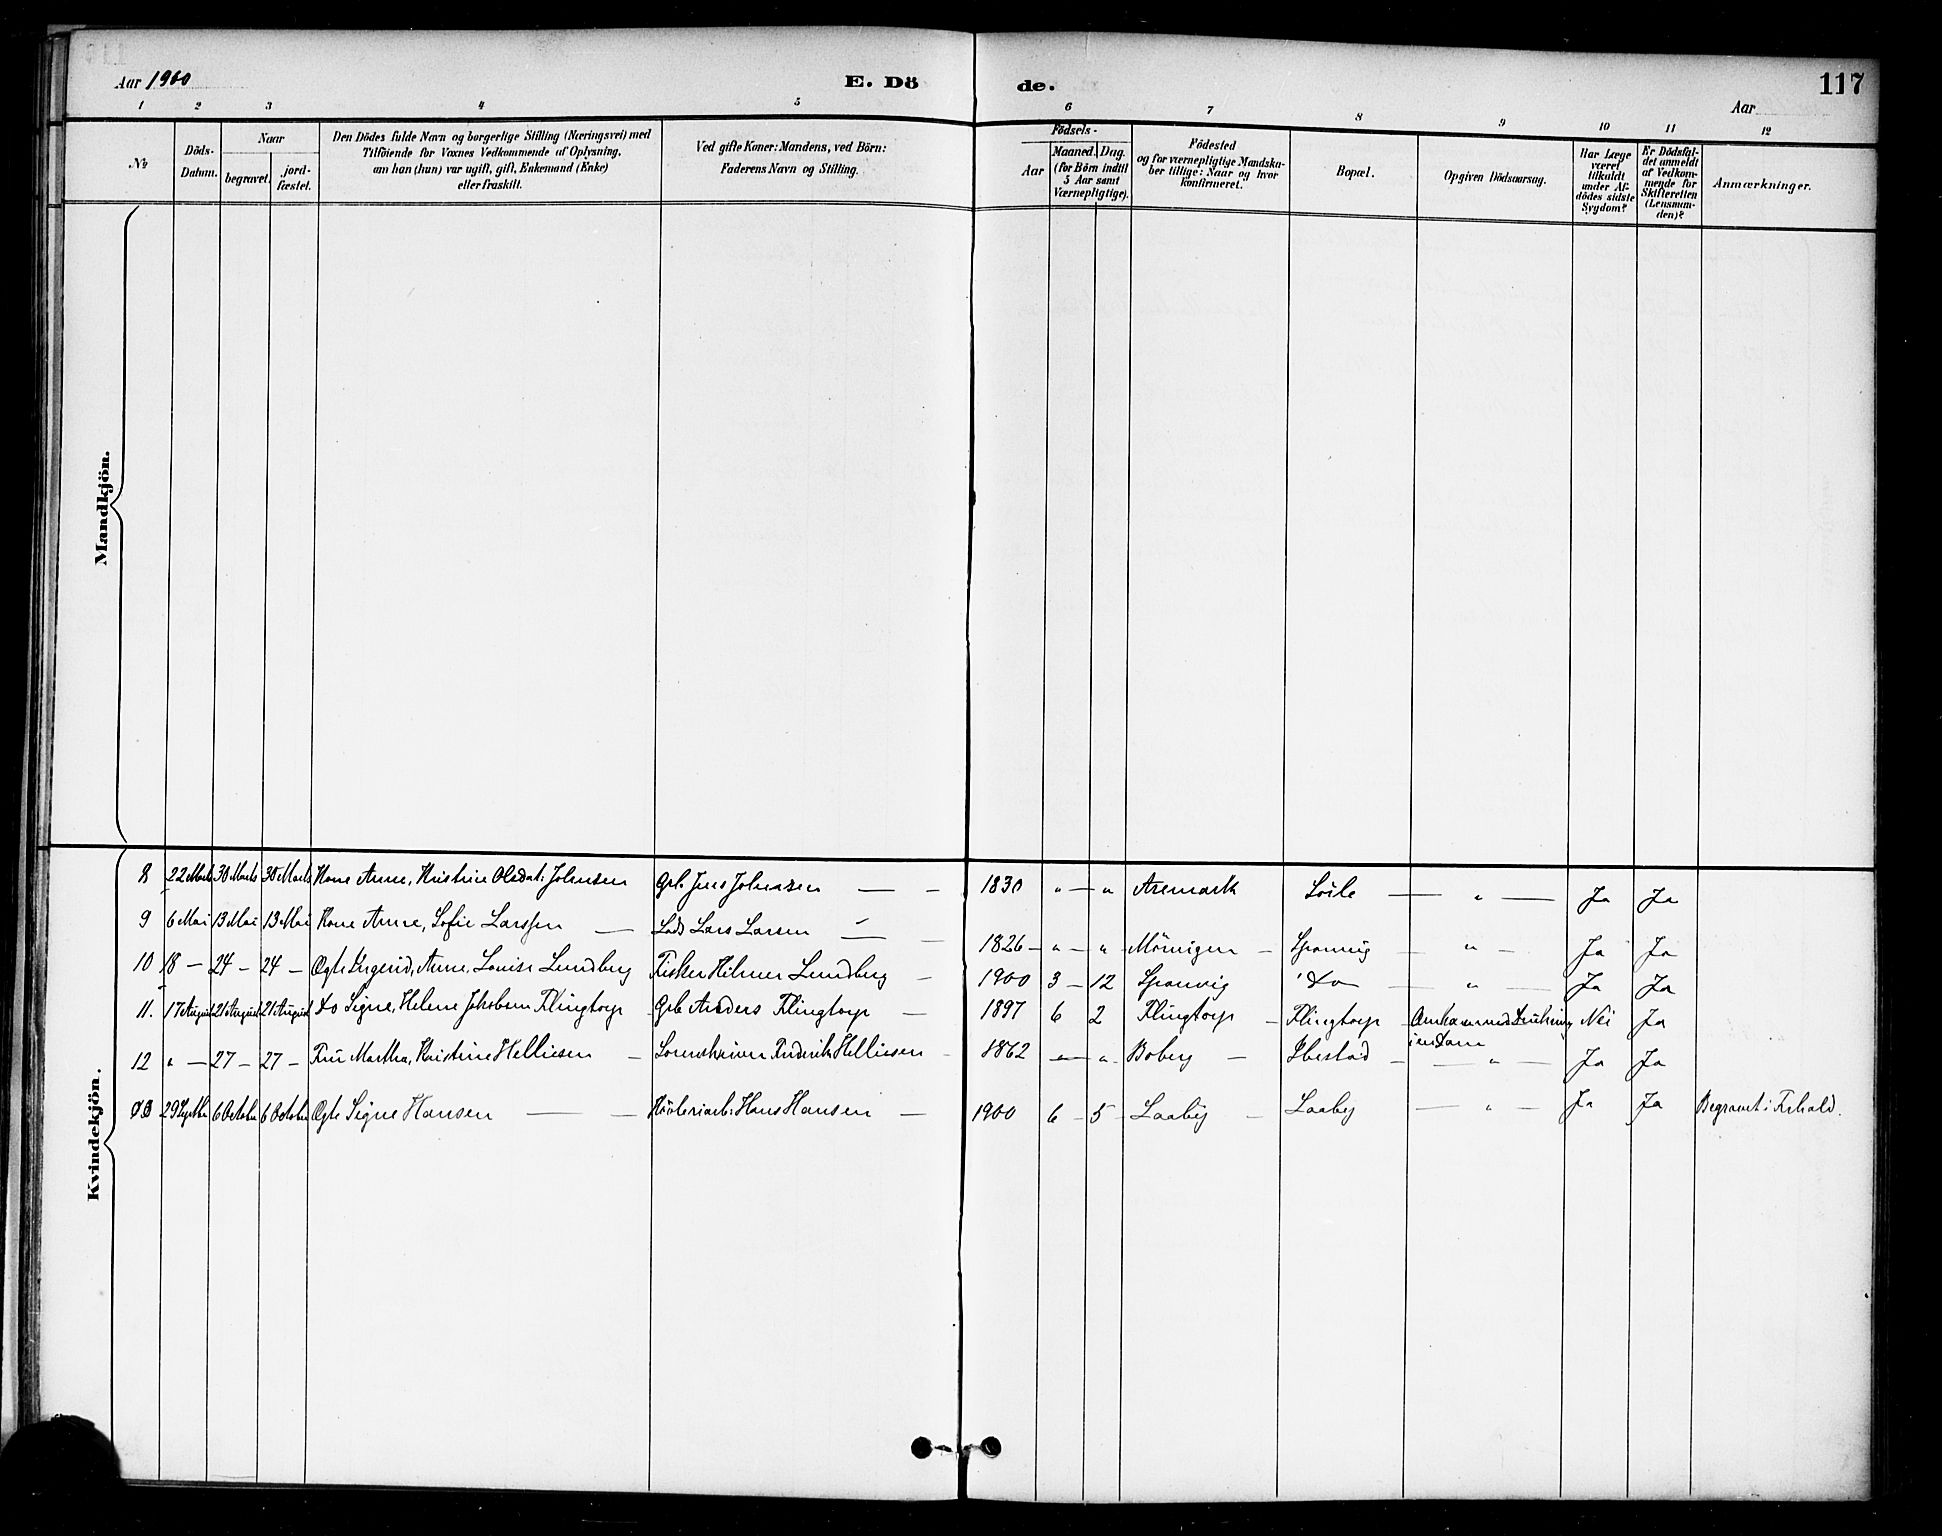 Aar 1900
E. Dö
de.
117
Aar
1 2 3 4 5 6 7 8 9 10 11 12
No
Döds-
Datum.
Naar
begravet.
jord-
fæstet.
Den Dödes fulde Navn og borgerlige Stilling (Næringsvei) med
Tilföiende for Voxnes Vedkommende af Oplysning,
om han (hun) var ugift, gift, Enkemand (Enke)
eller fraskilt.
Ved gifte Koner: Mandens, ved Börn:
Faderens Navn og Stilling.
Födsels-
Aar
Maaned. Dag.
(for Börn indtil
5 Aar samt
Værnepligtige).
Födested
og for værnepligtige Mandska-
ber tillige: Naar og hvor
konfirmeret.
Bopæl.
Opgiven Dödsaarsag.
Har Læge
været
tilkaldt
under Af-
dödes sidste
Sygdom?
Er Dödsfal-
det anmeldt
af Vedkom-
mende for
Skifteretten
(Lensman-
den)?
Anmærkninger.
Mandkjön.
Kvindekjön.
8 22 Marts 30 Marts 30 Marts Kone Anne, Kristine Olsdat: Johnsen Grb. Jens Johnsen — - 1830 " — " Aremark — " — Ja Ja
9 6 Mai 13 Mai 13 Mai Kone Anne, Sofie Larssen — Lods Lars Larsen — 1826 - " - " Spawvig — " - Ja Ja
10 18 — 24 — 24 — Ægte Ingerid, Anne, Louise Lundberg Fisker Hilmer Lundberg — 1900 3 — 12 Do — " — Ja Ja
11. 17 August 21 August 21 August do Signe, Helene Jakobsen Klingtorp Grb Anders Klingtorp — 1897 6 2 Klingtorp — Klingtorp Nei Ja
12 " — 27 — 27 — Fru Martha, Kristine Helliesen — Sorenskriver Frederik Helliesen - 1862 " — " Boberg — Ibestad — " — Ja Ja
13 29 Septbr 6 October 6 October Ægte Signe Hansen — Hans Hansen — 1900 6 — 5 Laaby — Laaby — " — Ja Ja Begravet i Frhald.